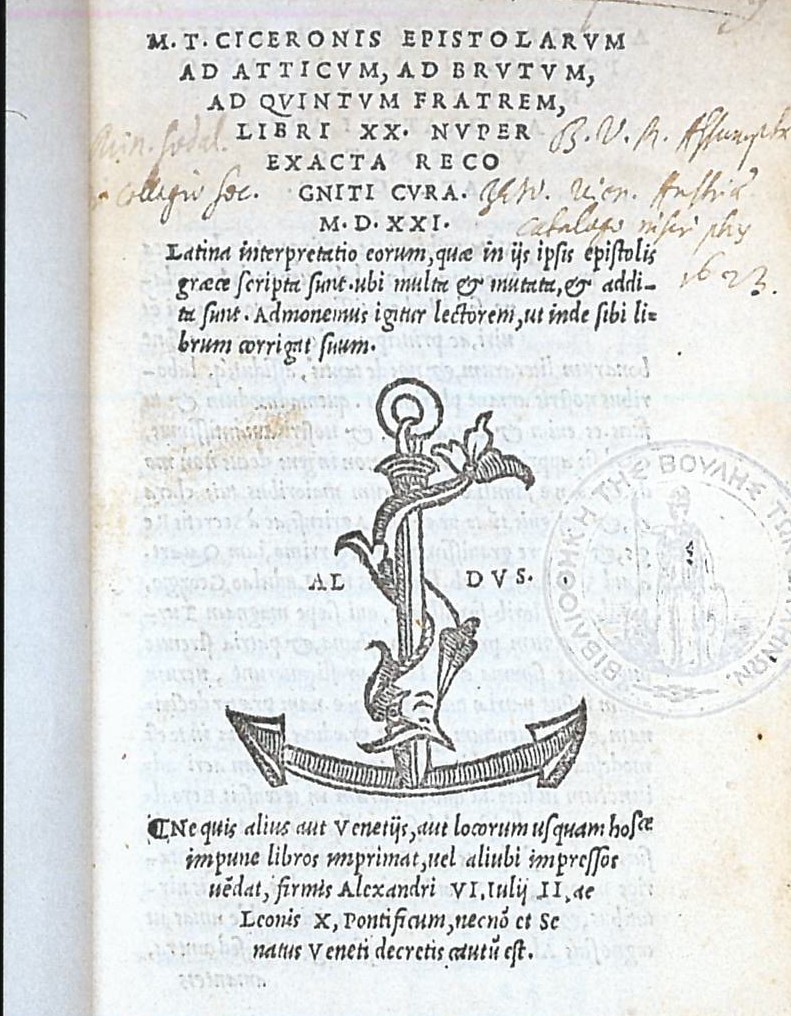 M. T. CICERONIS EPISTOLARVM
AD ATTICVM, AD BRVTVM,
AD QVINTVM FRATREM,
LIBRI XX. NVPER
EXACTA RECO
GNITI CVRA.
M. D. XXI.
B. V. M. Assumptæ
collegio Soc.
Vien. Austriæ
catalogo
1623.
Latina interpretatio eorum, quæ in ijs ipsis epistolis
græce scripta sunt. ubi multa & mutata, & addi-
ta sunt. Admonemus igitur lectorem, ut inde sibi li=
brum corrigat suum.
AL DVS.
ΒΙΒΛΙΟΘΗΚΗ ΤΗΣ ΒΟΥΛΗΣ ΤΩΝ
¶Ne quis alius aut Venetijs, aut locorum usquam hosce
impune libros imprimat, uel alíubi impressos
uēdat, firmis Alexandri VI, Iulij II, ac
Leonis X, Pontificum, necnō et Se
natus Veneti decretis cautū est.